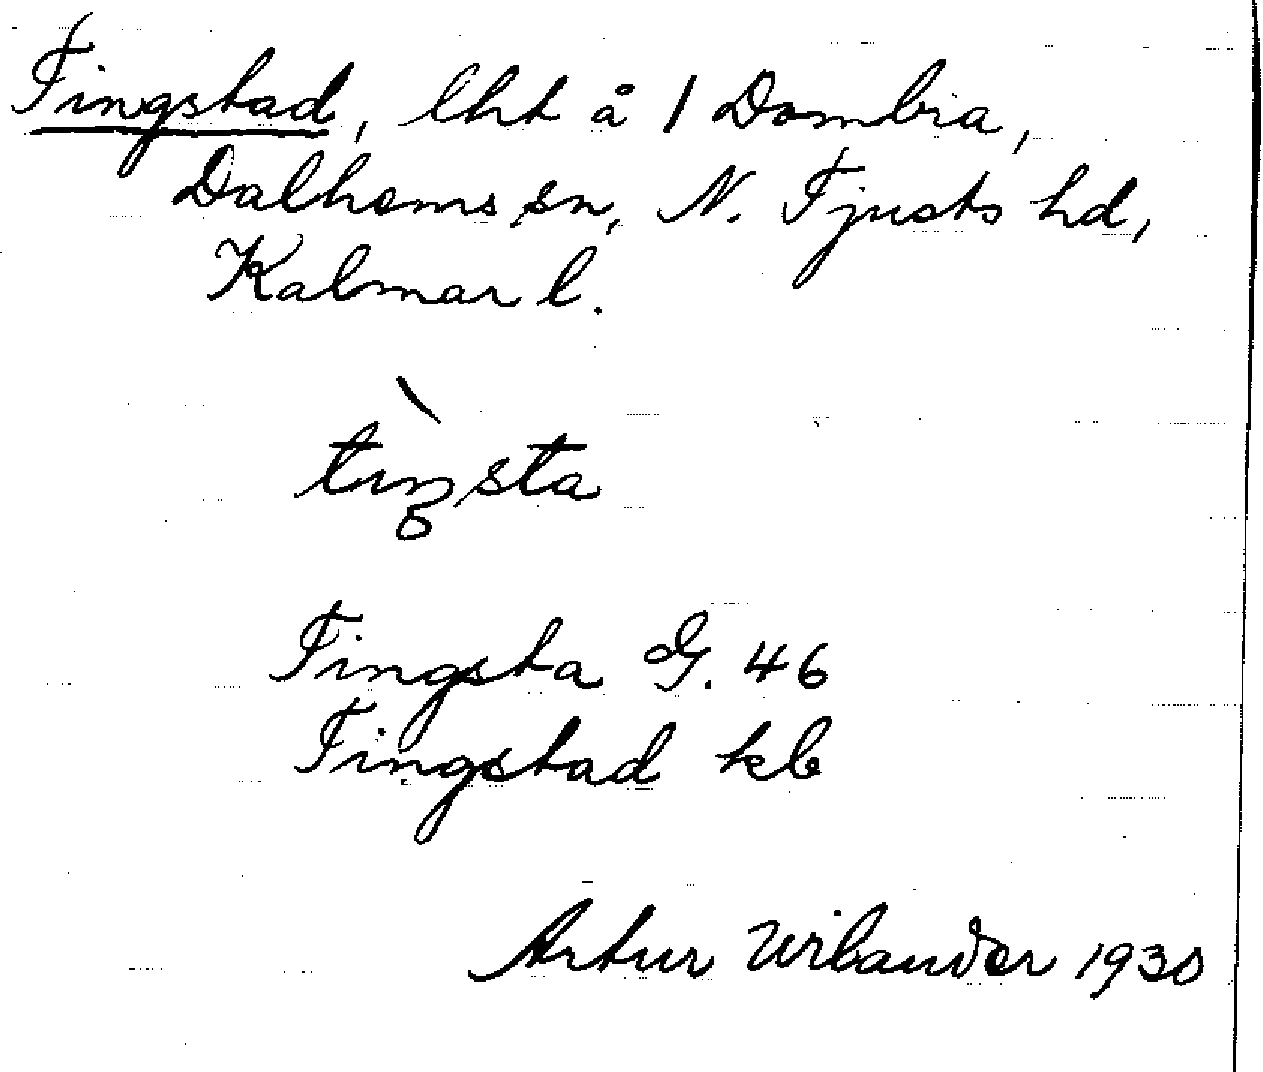 Tingstad, lht å 1 Dombra,
Dalhems sn, N. Tjusts hd,
Kalmar l.
tıŋsta
Tingsta G. 46
Tingstad kb
Artur Wilander 1930